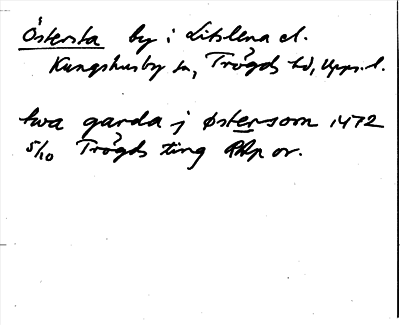 Östersta by i Litslena el.
Kungshusby sn, Trögds hd, Upps. l.
twa garda j østersom 1472
5/10 Trögds ting RAp or.